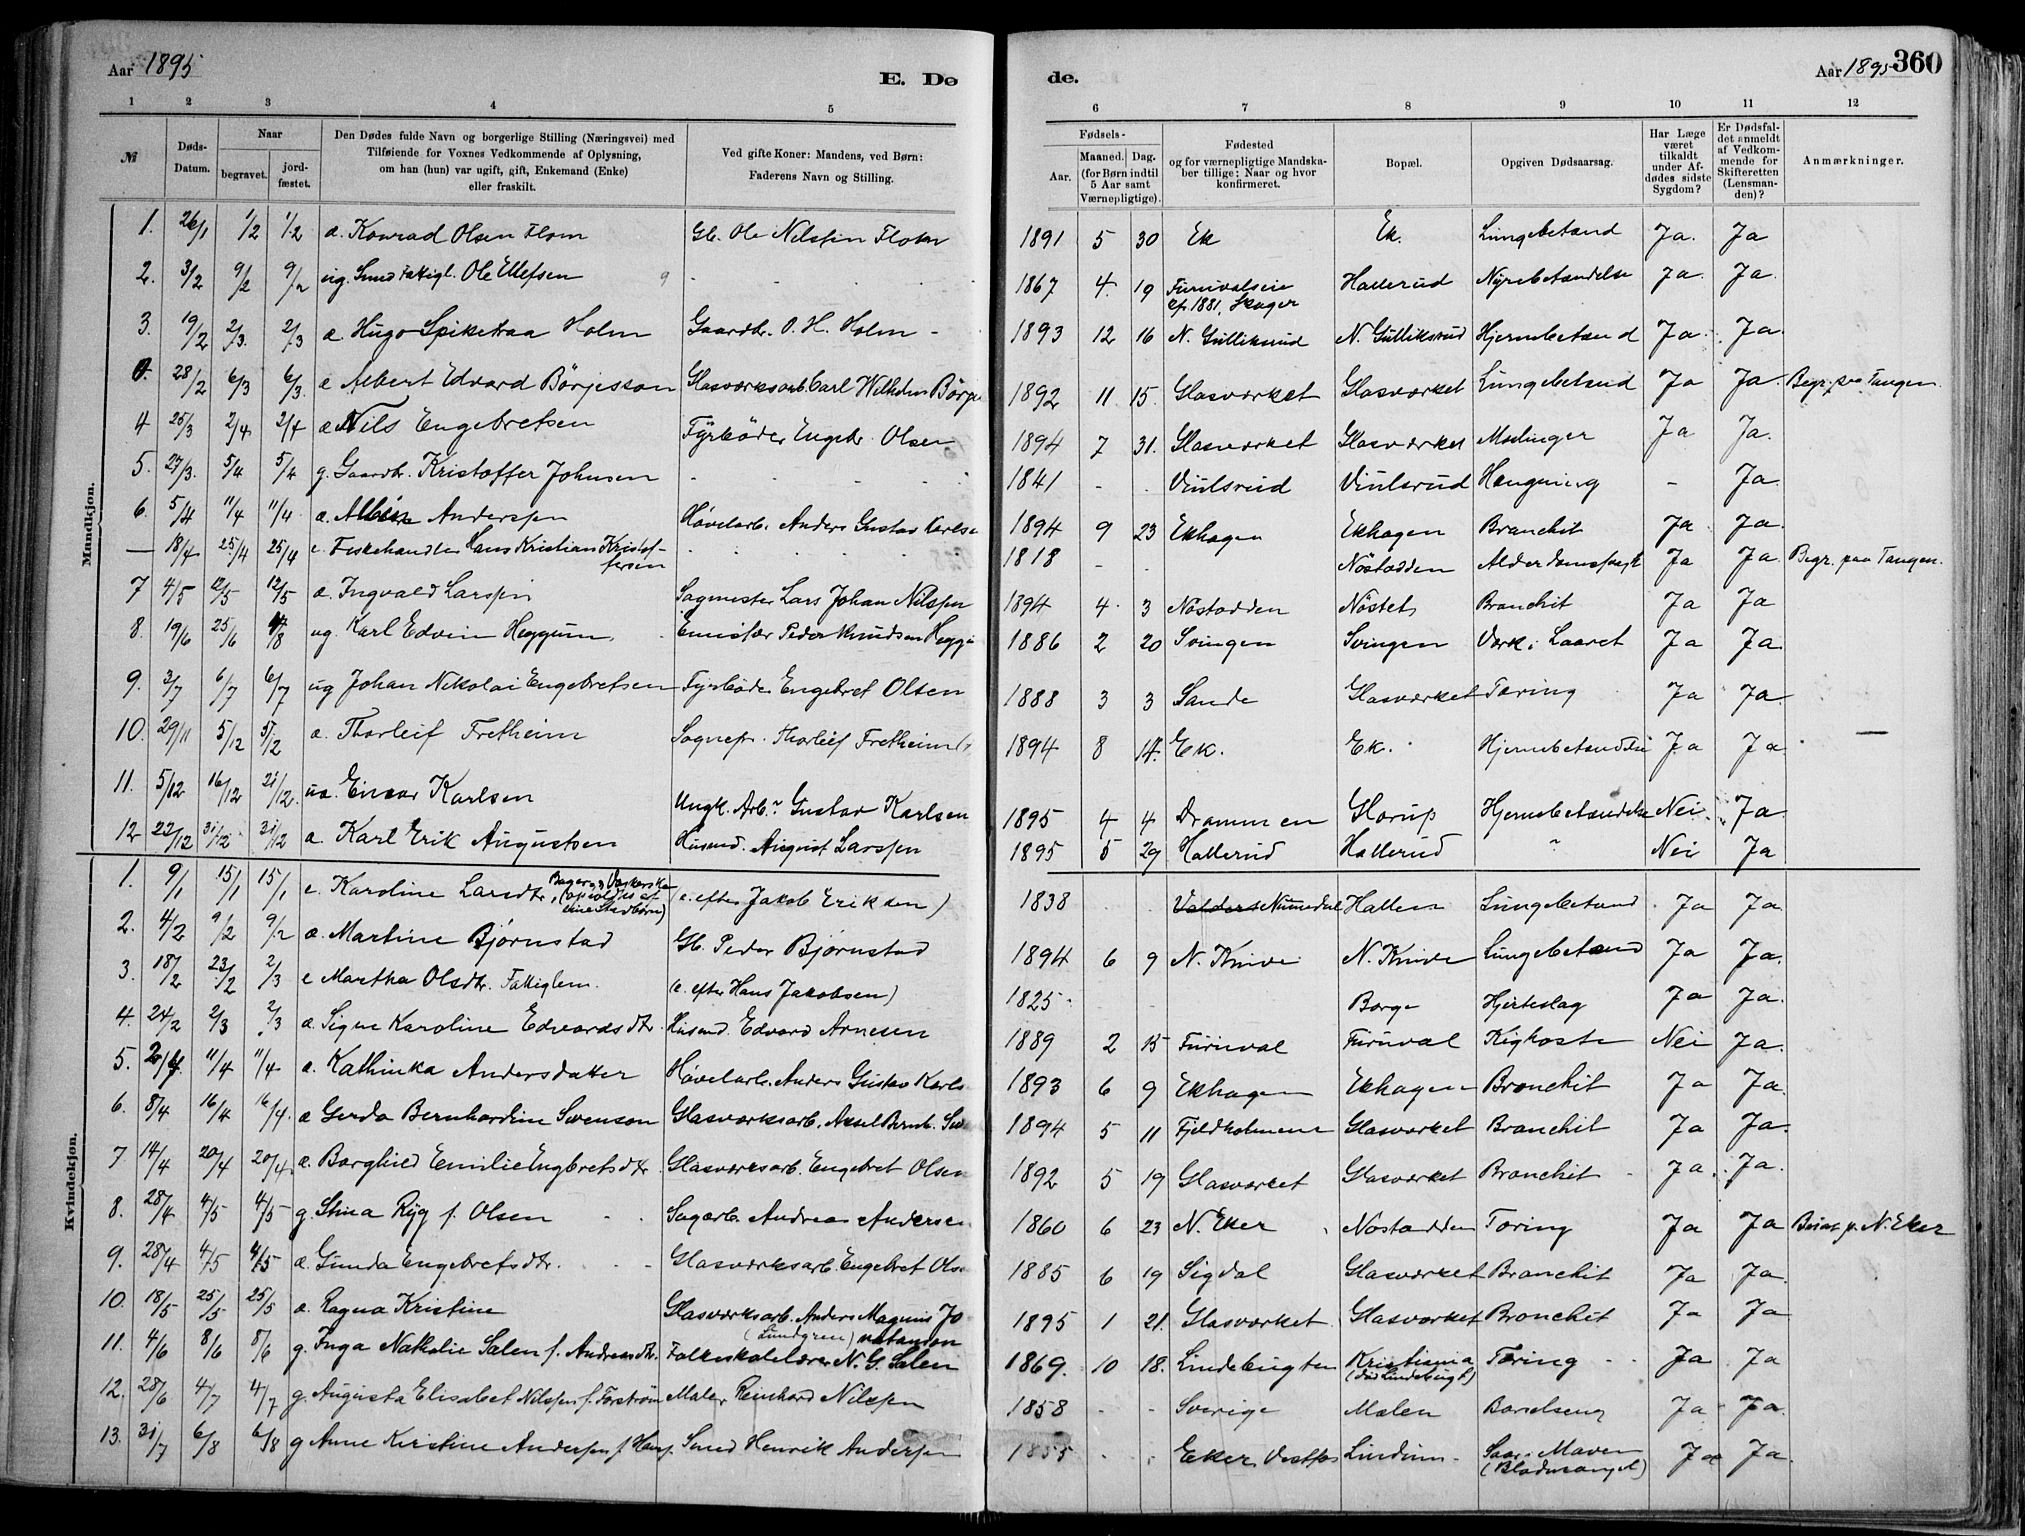 Aar 1895
E. Dø
de.
Aar 1895 360
1 2 3 4 5
6 7 8 9 10 11 12
№
Døds-Datum.
Naar
begravet.
jordfæstet.
Den Dødes fulde Navn og borgerlige Stilling (Næringsvei) med
Tilføiende for Voxnes Vedkommende af Oplysning,
om han (hun) var ugift, gift, Enkemand (Enke)
eller fraskilt.
Ved gifte Koner: Mandens, ved Børn:
Faderens Navn og Stilling.
Fødsels-
Aar.
Maaned.
Dag.
(for Børn indtil
5 Aar samt
Værnepligtige).
Fødested
og for værnepligtige Mandska-
ber tillige: Naar og hvor
konfirmeret.
Bopæl.
Opgiven Dødsaarsag.
Har Læge
været
tilkaldt
under Af-
dødes sidste
Sygdom?
Er Dødsfal-
det anmeldt
af Vedkom-
mende for
Skifteretten
(Lensman-
den)?
Anmærkninger.
Mandkjøn.
1. 26/1 1/2 1/2 a. Konrad Olsen Flom Gb. Ole Nilssen 1891 5 30 Ek Ek. Lungebetænd Ja. Ja
2. 3/2 9/2 9/2 ug. Ole Ellefsen 1867 4. 19 Hallerud Nyrebetændelse Ja. Ja.
1881, Skoger
3. 19/2 2/3. 2/3 Hugo Holm Gaardbr. O. H. Holm 1893 12 16 N. Gulliksrud N. Gulliksrud Hjernebetænd Ja. Ja.
28/2 6/3 6/3. Albert Edvard Börjesson Glasværksarb Carl Wilhelm 1892 11 15. Glasværket Glasværket Lungebetænd Ja Ja. Begr. paa Tangen.
4 25/3 2/4. 2/4 Nils Engebretsen Fyrbøder Engebr. Olsen 1894 7 31. Glasværket Glasværket Meslinger Ja Ja.
5. 27/3. 5/4 5/4 g. Gaardbr. Kristoffer Johnsen 1841 Viulsrud Viulsrud Hængning - Ja.
6. 5/4 11/4 11/4 Anderssen Høvelarb. Anders Gustav 1894 9 23 Ekhagen Ekhagen Bronchit Ja Ja.
— 18/4 25/4 25/4 e. Fiskehandler Hans Kristian Kristof-
fersen 1818 Nöstodden Ja Ja. Begr. paa Tangen.
7 4/5 12/5 12/5 Ingvald Larssen Sagmester Lars Johan Nilssen 1894 4. 3 Nöstodden Nöstet Bronchit Ja Ja
8. 19/6 25/6 ug. Karl Edvin Heggum Peder Knudsen 1886 2 20 Svingen Svingen Værk i Laaret Ja Ja.
9. 3/7 6/7 6/7 ug Johan Nikolai Engebretsen Fyrbøder Engebret Olsen 1888 3 3 Sande Glasværket Tæring Ja Ja.
10. 29/11 5/12 5/12 Thorleif Fretheim Sognepr. Thorleif Fretheim 1894 8 14. Ek. Ek. Ja Ja. —
11. 5/12 16/12 31/12. Einar Karlsen Ungk. Arb. Gustav Karlsen 1895 4 4 Drammen Glorup Hjernebetændelse Nei Ja.
12 22/12 31/12 31/12 Karl Erik Augustsen Husmd. August Larssen 1895 5 29 Hallerud Hallerud " Nei Ja
Kvindekjøn.
1. 9/1 15/1 15/1 e. Karoline Larsdtr. (e. efter Jakob Eriksen) 1838 Numedal Hallen Lungebetænd Ja Ja.
2. 4/2 9/2 9/2 Martine Bjørnstad Gb. Peder Bjørnstad 1894 6 9 N. Knive N. Knive Lungebetænd Ja Ja.
3. 18/2 23/2 2/3 e Martha Olsdtr. Fattiglem. (e. efter Hans Jakobsen) 1825 Borge Hjerteslag Ja Ja.
4. 24/2 2/3 2/3 Signe Karoline Edvardsdtr. Husmd. Edvard Arnesen 1889 2 15 Furuval Furuval Kighoste Nei Ja.
5. 11/4 11/4 Kathinka Andersdatter Høvelarb. Anders Gustav 1893 6 9 Ekhagen Ekhagen Bronchit Ja Ja.
6. 8/4 16/4 16/4. Gerda Bernhardine Svenson Glasværksarb. Axel Bernh. 1894 5 11 Fjeldholmene Glasværket Bronchit Ja Ja.
7 14/4 20/4 20/4. Borghild Emilie Engbretsdtr. Glasværksarb. Engebret Olsen 1892 5 19 Glasværket Glasværket Bronchit Ja. Ja.
8. 28/4 4/5 4/5 g. Stina Ryg f. Olsen Sagarb. Andreas Andersen 1860 6 23 N. Eker Nöstodden Tæring Ja Ja N. Eker
9. 28/4 4/5 4/5 Gunda Engebretsdtr. Glasværksarb. Engebret Ols 1885 6 19 Sigdal Glasværket Bronchit Ja Ja.
10. 18/5 25/5 25/5 Ragna Kristine Glasværksarb. Anders Magnus Jo
(Lundgren) 1895 1 21. Glasværket Glasværket Bronchit Ja Ja
11. 4/6 8/6 8/6 g. Inga Nathalie Salen f. Andreasdtr. Folkeskolelærer N. G. Salen 1869. 10 18. Lindebugten Kristiania Tæring Ja Ja
12. 28/6 4/7 4/7 g. Augusta Elisabet Nilssen Maler Reinhard Nilssen 1858 Sverige Malen Barselseng Ja Ja.
13. 31/7 6/8 6/8 g Anne Kristine Anderssen Smed Henrik Anderssen 1855 Eker Lindum Saar i Maven Ja Ja.